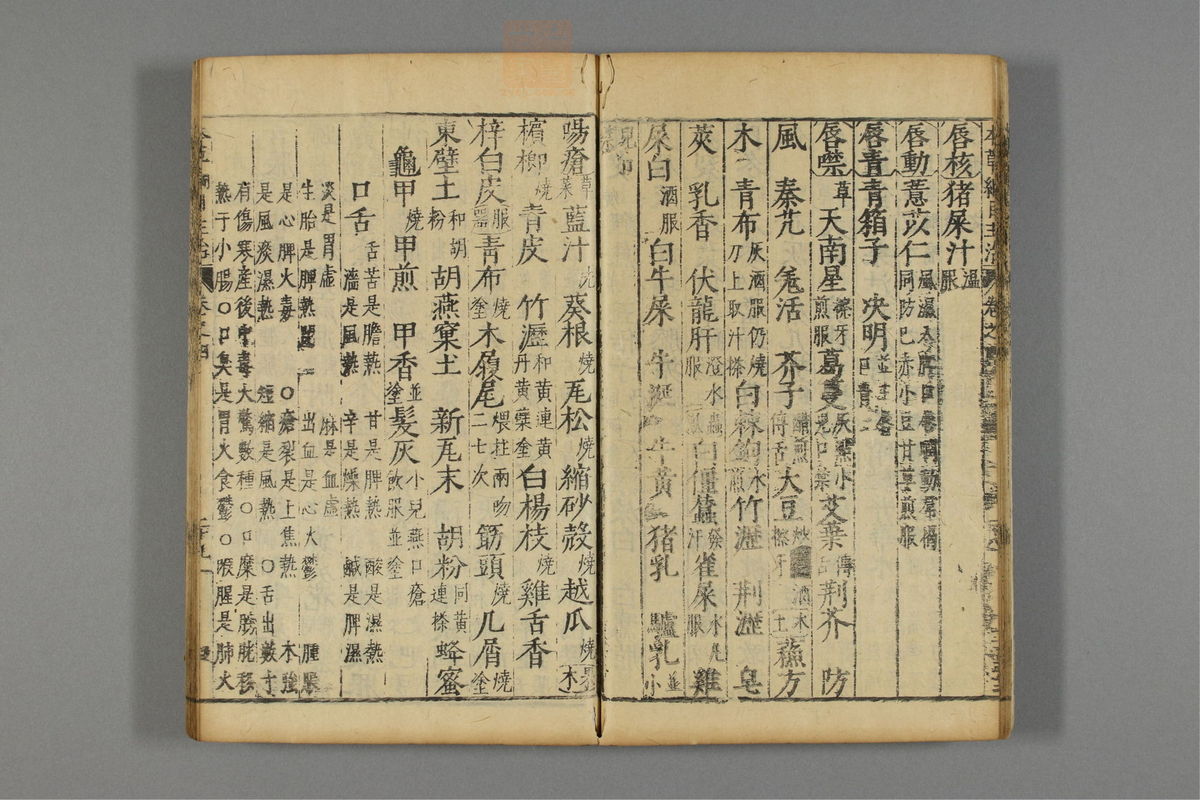 唇核猪屎汁温服
唇動薏苡仁風濕入脾口唇瞤動同防己赤小豆甘草煎服
唇青青箱子 決明並主
唇噤草天南星擦牙煎服葛蔓灰小艾葉傅荆芥 防
風 秦艽 羗活 芥子醋煎傅舌大豆炒擦牙酒木土蘓方
木一青布灰酒服仍燒刀上取汁搽白棘鈎水煎竹瀝 荆瀝 皂
莢 乳香 伏龍肝澄水服蟲白僵蠶發汗雀屎水丸服雞
屎白酒服白牛屎 牛 牛黄 猪乳 驢乳並小
瘍瘡草藍汁洗葵根燒 松燒縮砂殼燒越瓜燒木
檳榔燒青皮 竹瀝和黄連黄丹黄蘗塗白楊枝燒雞舌香
梓白皮服青布燒塗木履尾煨拄兩吻二七次筯頭燒几屑燒塗
東壁土和胡粉胡燕窠土 新瓦末 胡粉同黄連搽蜂蜜
龜甲燒甲煎 甲香並塗髪灰小兒燕口瘡飲服並塗
口舌舌苦是膽熱 甘是脾熱 酸是濕熱
濇是風熱 辛是燥熱 鹹是脾濕
淡是胃虛 麻是血虛
生胎是脾熱 出血是心火鬱 腫
是心脾火毒 〇瘡裂是上焦熱 木強
是風痰濕熱 短縮是風熱 〇舌出數寸
有傷寒産後中毒大驚數種〇口糜是膀胱移
熱于小腸〇口臭是胃火食鬱〇喉腥是肺火